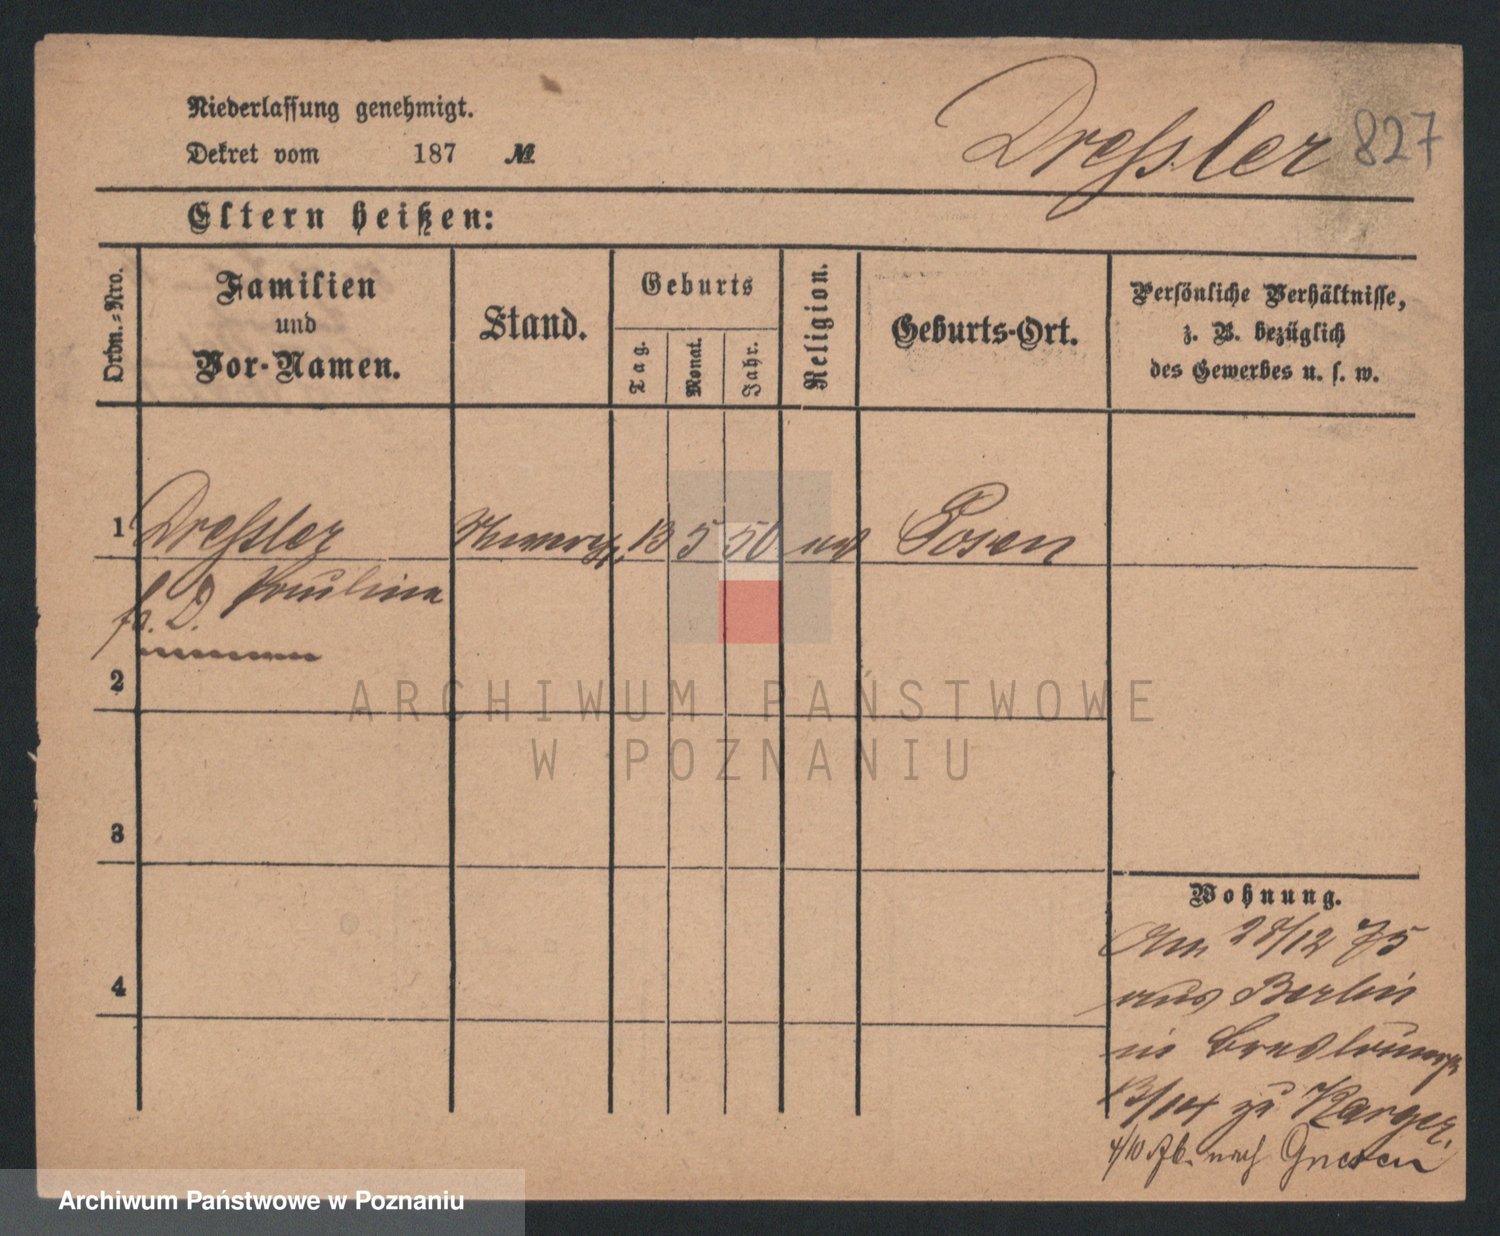 Niederlassung genehmigt.
Dekret vom 187 №
Dressler 827
Eltern heißen:
Ordn.-Nro.
Familien
und
Vor-Namen.
Stand.
Geburts
Tag.
Monat.
Jahr.
Religion.
Geburts-Ort.
Persönliche Verhältnisse,
z. B. bezüglich
des Gewerbes u. s. w.
1 Dressler 13 5 50 Posen
D. Paulina
2
3
4
Wohnung.
Am 28/12 75
aus Berlin
in Breslauerstr
13/14 zu Karger.
4/10 Ab. nach Gnesen
ARCHIWUM PAŃSTWOWE
W POZNANIU
Archiwum Państwowe w Poznaniu